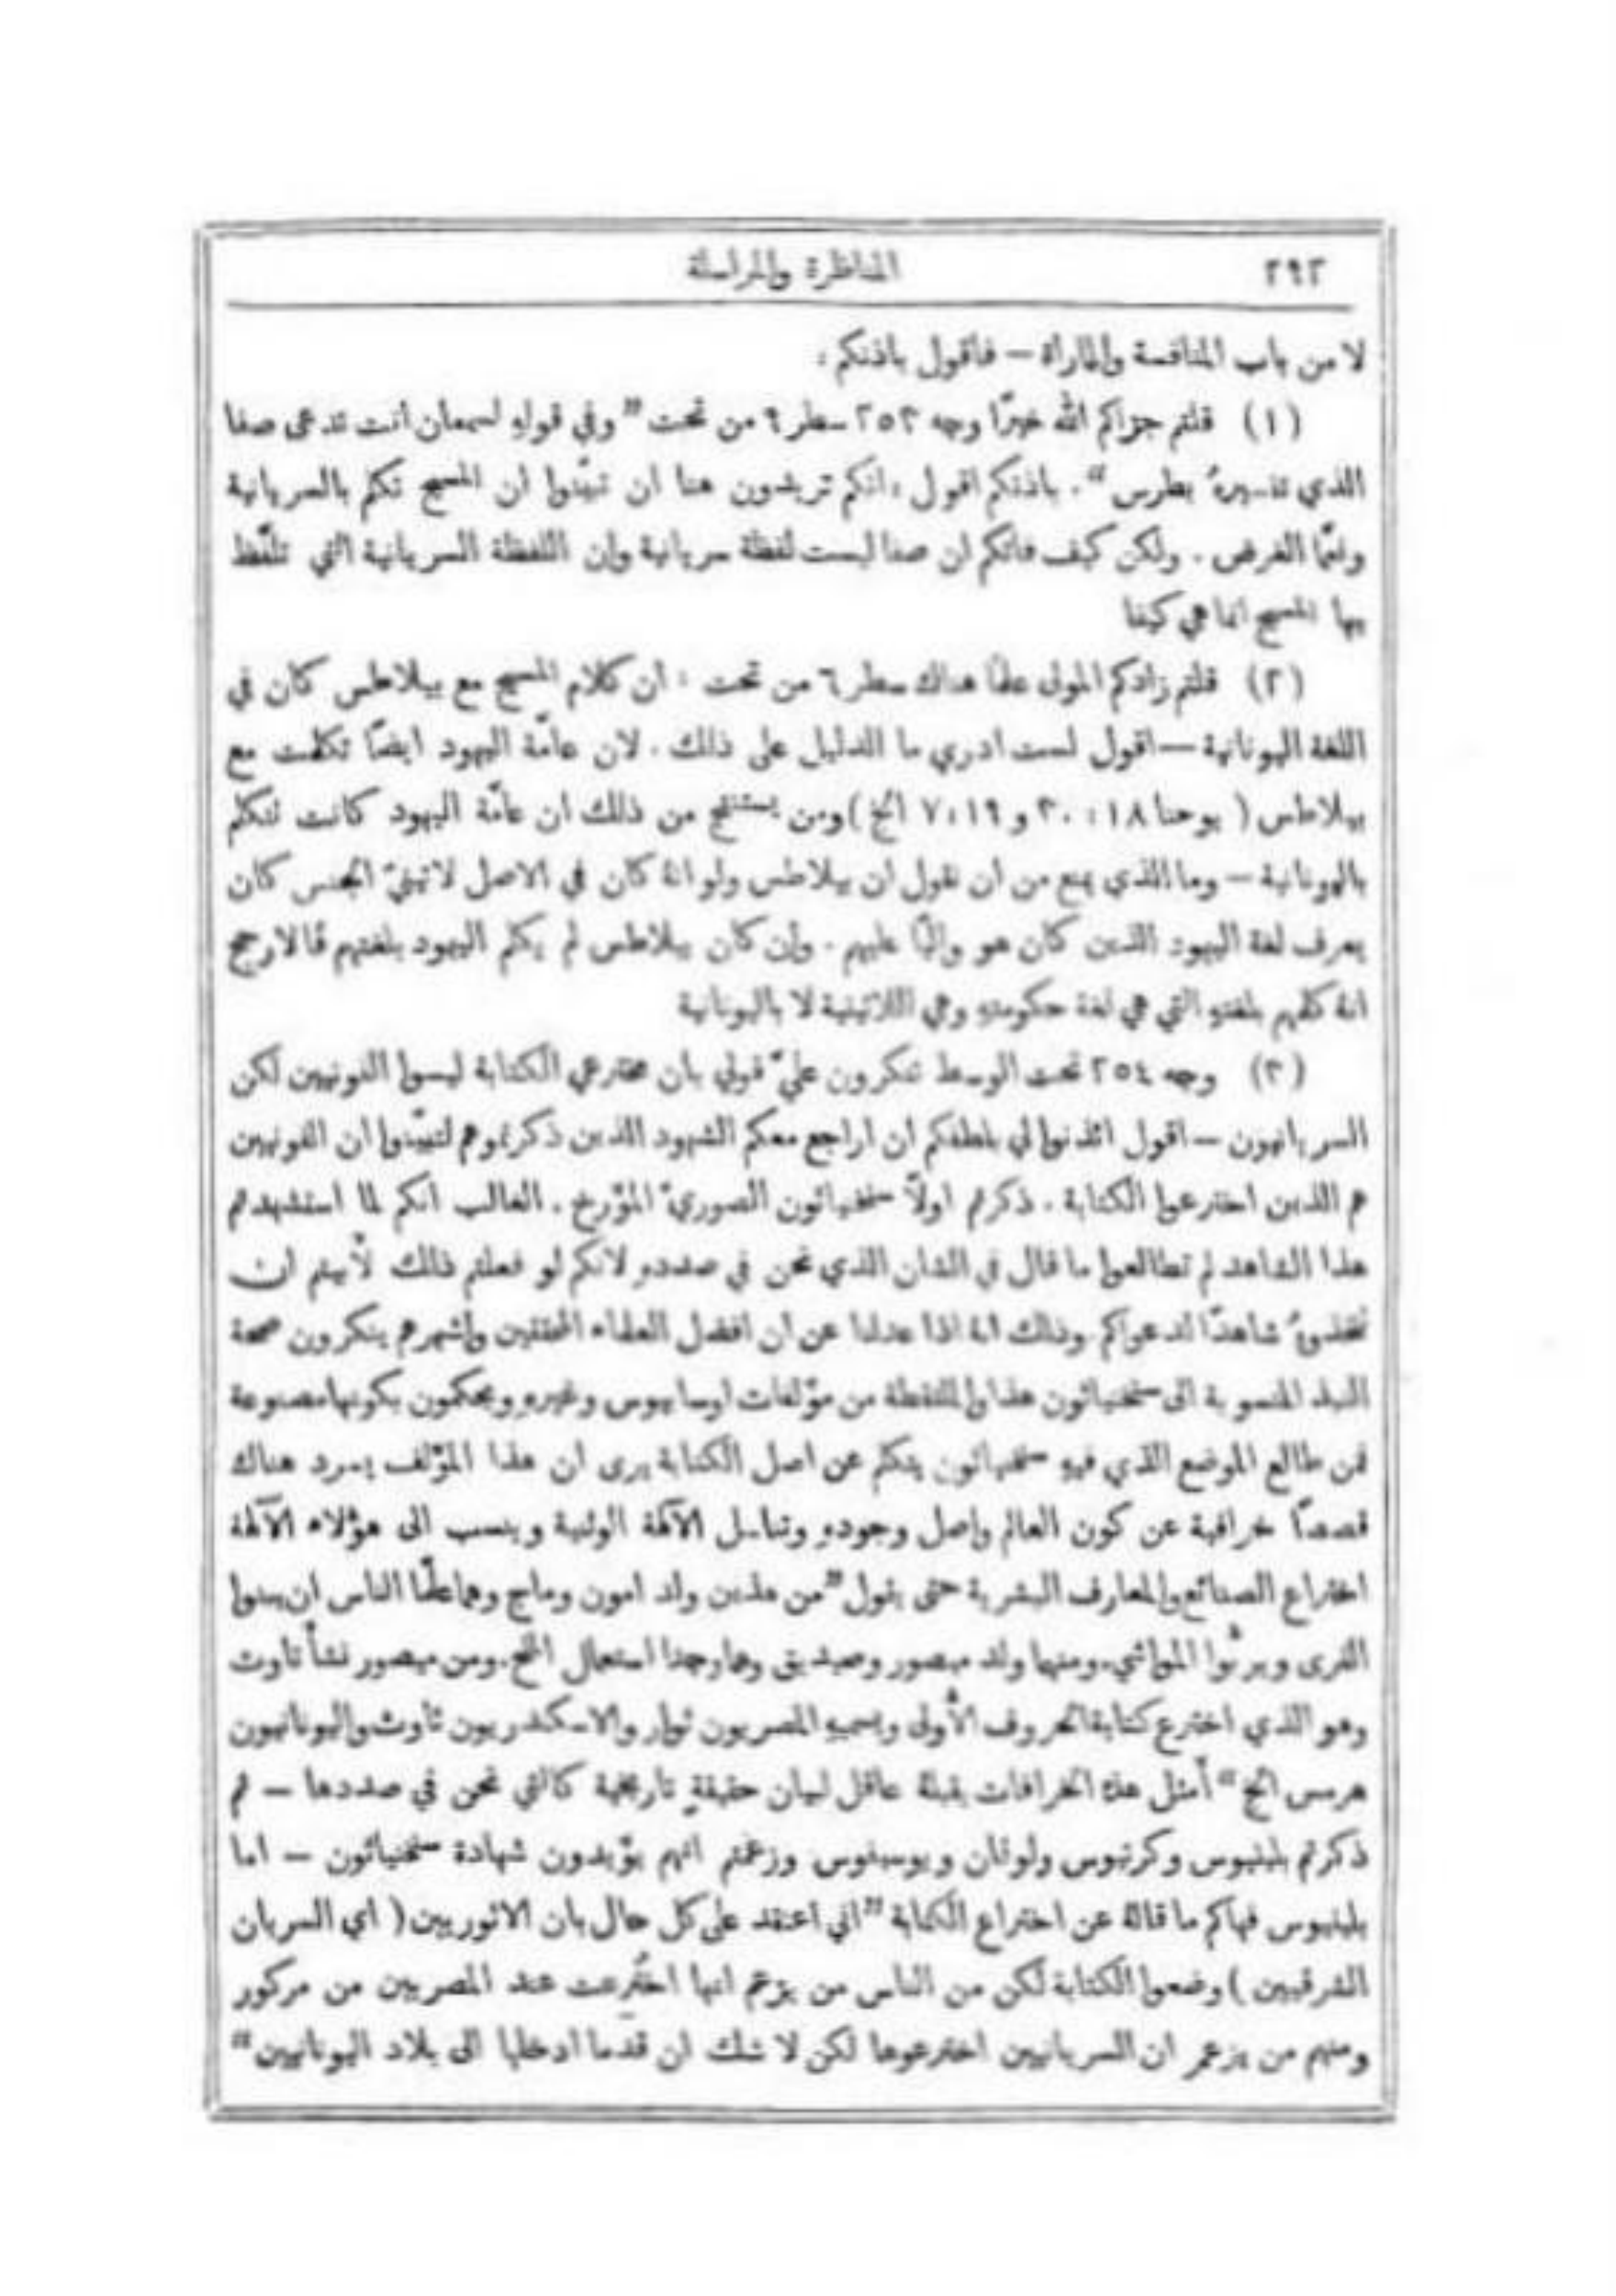 ٢٩٢ المناظرة والمراسلة
لا من باب المنافسة والماراة – فاقول باذنكم:
(١) قلتم جزاكم الله خيرًا وجه ٢٥٢ سطر ٩ من تحت "وفي قولهِ لسمعان انت تدعى صفا
الذي تفسيرهُ بطرس". باذنكم اقول: انكم تريدون هنا ان تبيّنوا ان المسيح تكلم بالسريانية
ونعمَّا الغرض. ولكن كيف فاتكم ان صفا ليست لفظة سريانية وان اللفظة السريانية التي تلفَّظ
بها المسيح انما هي كيفا
(٢) قلتم زادكم المولى علمًا هناك سطر ٦ من تحت: ان كلام المسيح مع بيلاطس كان في
اللغة اليونانية – اقول لست ادري ما الدليل على ذلك. لان عامَّة اليهود ايضًا تكلمت مع
بيلاطس (يوحنا ١٨: ٣٠ و ١٩: ٧ الخ) ومن يستنتج من ذلك ان عامَّة اليهود كانت تتكلم
باليونانية – وما الذي يمنع من ان نقول ان بيلاطس ولو انهُ كان في الاصل لاتينيّ الجنس كان
يعرف لغة اليهود الذين كان هو واليًا عليهم. وان كان بيلاطس لم يكلم اليهود بلغتهم فالارجح
انهُ كلمهم بلغتهِ التي هي لغة حكومتهِ وهي اللاتينية لا باليونانية
(٣) وجه ٢٥٤ تحت الوسط تنكرون عليَّ قولي بان مخترعي الكتابة ليسوا الفونيين لكن
السريانيون – اقول ائذنوا لي بلطفكم ان اراجع معكم الشهود الذين ذكرتموهم لتبيّنوا ان الفونيين
هم الذين اخترعوا الكتابة. ذكرتم اولًا سنخنياثون الصوريّ المؤرخ. الغالب انكم لما استشهدتم
هذا الشاهد لم تطالعوا ما قال في الشان الذي نحن في صددهِ لانكم لو فعلتم ذلك لأبيتم ان
تتخذوهُ شاهدًا لدعواكم. وذلك انهُ اذا عدلنا عن ان افضل العلماء المحققين واشهرهم ينكرون صحة
النبذ المنسوبة الى سنخنياثون هذا والملتقطة من مؤلفات اوسابيوس وغيرهِ ويحكمون بكونها مصنوعة
فمن طالع الموضع الذي فيهِ سنخنياثون يتكلم عن اصل الكتابة يرى ان هذا المؤلف يسرد هناك
قصصًا خرافية عن كون العالم واصل وجودهِ وتناسل الآلهة الوثنية وينسب الى هؤلاء الآلهة
اختراع الصنائع والمعارف البشرية حتى يقول "من هذين ولد امون وماج وهما علَّما الناس ان يبنوا
القرى ويربُّوا المواشي. ومنهما ولد ميصور وصيديق وهما وجدا استعمال الملح. ومن ميصور نشأ تاوت
وهو الذي اخترع كتابة الحروف الأولى ويسميهِ المصريون ثوار والاسكندريون ثاوث واليونانيون
هرمس الخ" أمثل هذه الخرافات يقبلهُ عاقل لبيان حقيقةٍ تاريخية كالتي نحن في صددها – ثم
ذكرتم بلينيوس وكرتيوس ولوقان ويوسيفوس وزعمتم انهم يؤيدون شهادة سنخنياثون – اما
بلينيوس فهاكم ما قالهُ عن اختراع الكتابة "اني اعتقد على كل حال بان الاثوريين (اي السريان
الشرقيين) وضعوا الكتابة لكن من الناس من يزعم انها اختُرِعت عند المصريين من مركور
ومنهم من يزعم ان السريانيين اخترعوها لكن لا شك ان قدما ادخلها الى بلاد اليونانيين"